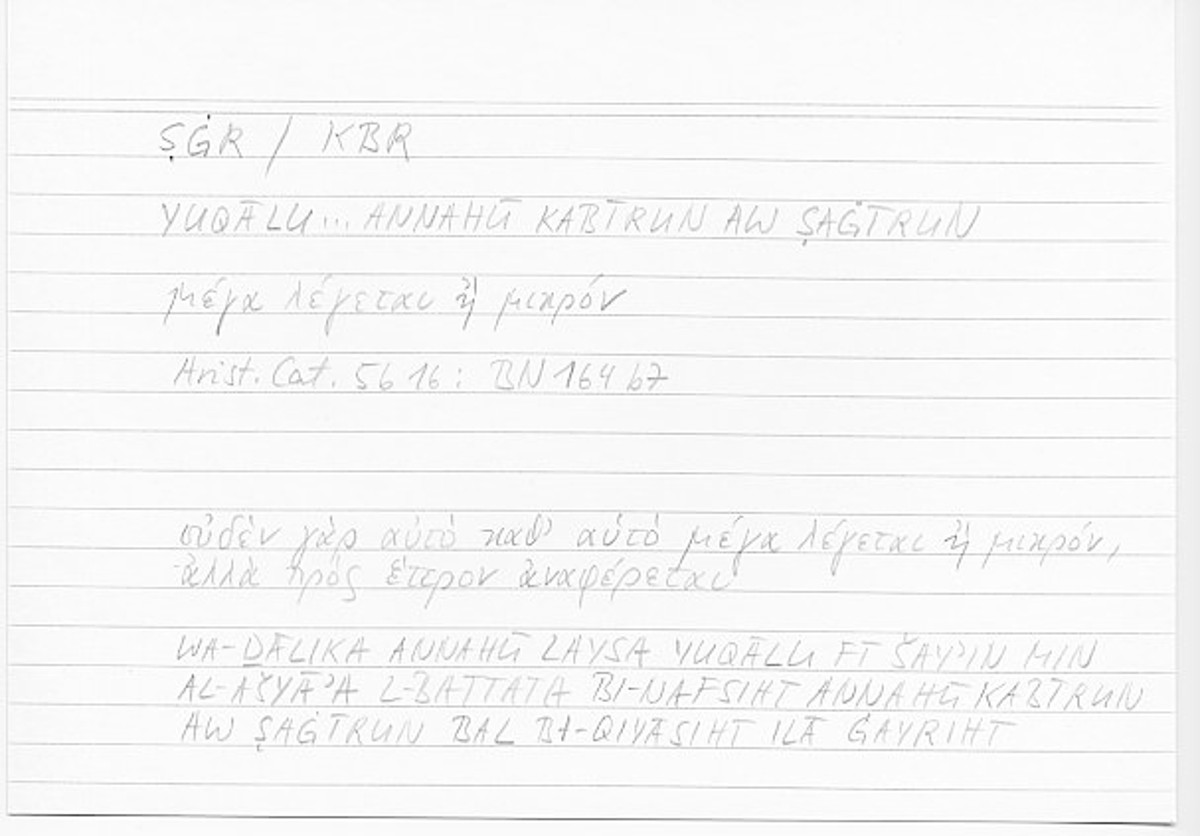 ṢĠR / KBR
YUQĀLU... ANNAHŪ KABĪRUN AW ṢAĠĪRUN
μέγα λέγεται ἢ μικρόν
Arist. Cat. 5b 16 : BN 164 b7
οὐδὲν γὰρ αὐτὸ καθ' αὑτὸ μέγα λέγεται ἢ μικρόν,
ἀλλὰ πρὸς ἕτερον ἀναφέρεται
WA-ḎĀLIKA ANNAHŪ LAYSA YUQĀLU FĪ ŠAY'IN MIN
AL-AŠYĀ'A L-BATTATA BI-NAFSIHĪ ANNAHŪ KABĪRUN
AW ṢAĠĪRUN BAL BI-QIYĀSIHĪ ILĀ ĠAYRIHĪ